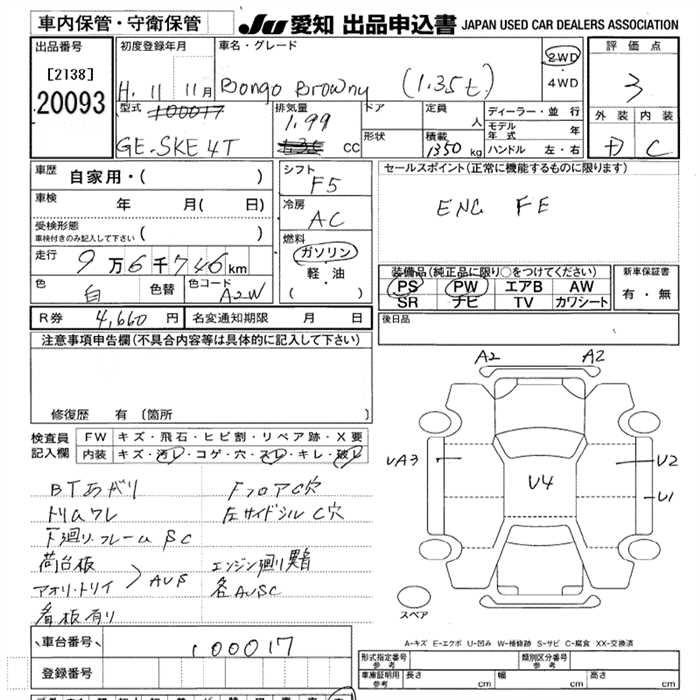 車内保管・守衛保管
JU 愛知 出品申込書 JAPAN USED CAR DEALERS ASSOCIATION
出品番号
[2138]
20093
初度登録年月
H. 11 11月
車名・グレード
Bongo Browny (1.35t)
2WD
4WD
評価点
3
外装 内装
D C
型式 100017
GE-SKE4T
排気量
1.99
cc
ドア
形状
定員
人
積載
1350kg
ディーラー・並行
モデル年式 年
ハンドル 左・右
車歴
自家用・( )
車検
年 月( 日)
受検形態
車検付きのみ記入して下さい ( )
走行
9万6千746km
色
白
色替
色コード
A2W
シフト
F5
冷房
AC
燃料
ガソリン
軽・油
( )
セールスポイント(正常に機能するものに限ります)
ENG FE
装備品(純正品に限り○をつけてください)
PS PW エアB AW
SR ナビ TV カワシート
新車保証書
有・無
R券 4,660 円 名変通知期限 月 日
後日品
注意事項申告欄(不具合内容等は具体的に記入して下さい)
修復歴 有 〔箇所
検査員
記入欄
FW キズ・飛石・ヒビ割・リペア跡・X要
内装 キズ・汚レ・コゲ・穴・スレ・キレ・破レ
BTあがり
トリムワレ
下廻り・フレームSC
荷台板
アオリ・トリイ
AUS
看板有り
FフロアC穴
左サイドシルC穴
エンジン廻り異音
各AUSC
A2 A2
UA3
U4
U2
U1
スペア
A-キズ E-エクボ U-凹み W-補修跡 S-サビ C-腐食 XX-交換済
車台番号
100017
登録番号
形式指定番号
参考
類別区分番号
参考
車庫証明用
参考
長さ cm 幅 cm 高さ cm